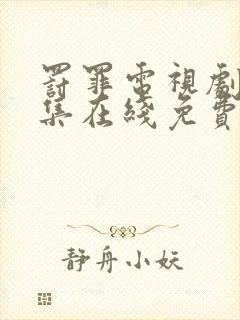 罸罪電視劇
集在綫免費
静舟小妖